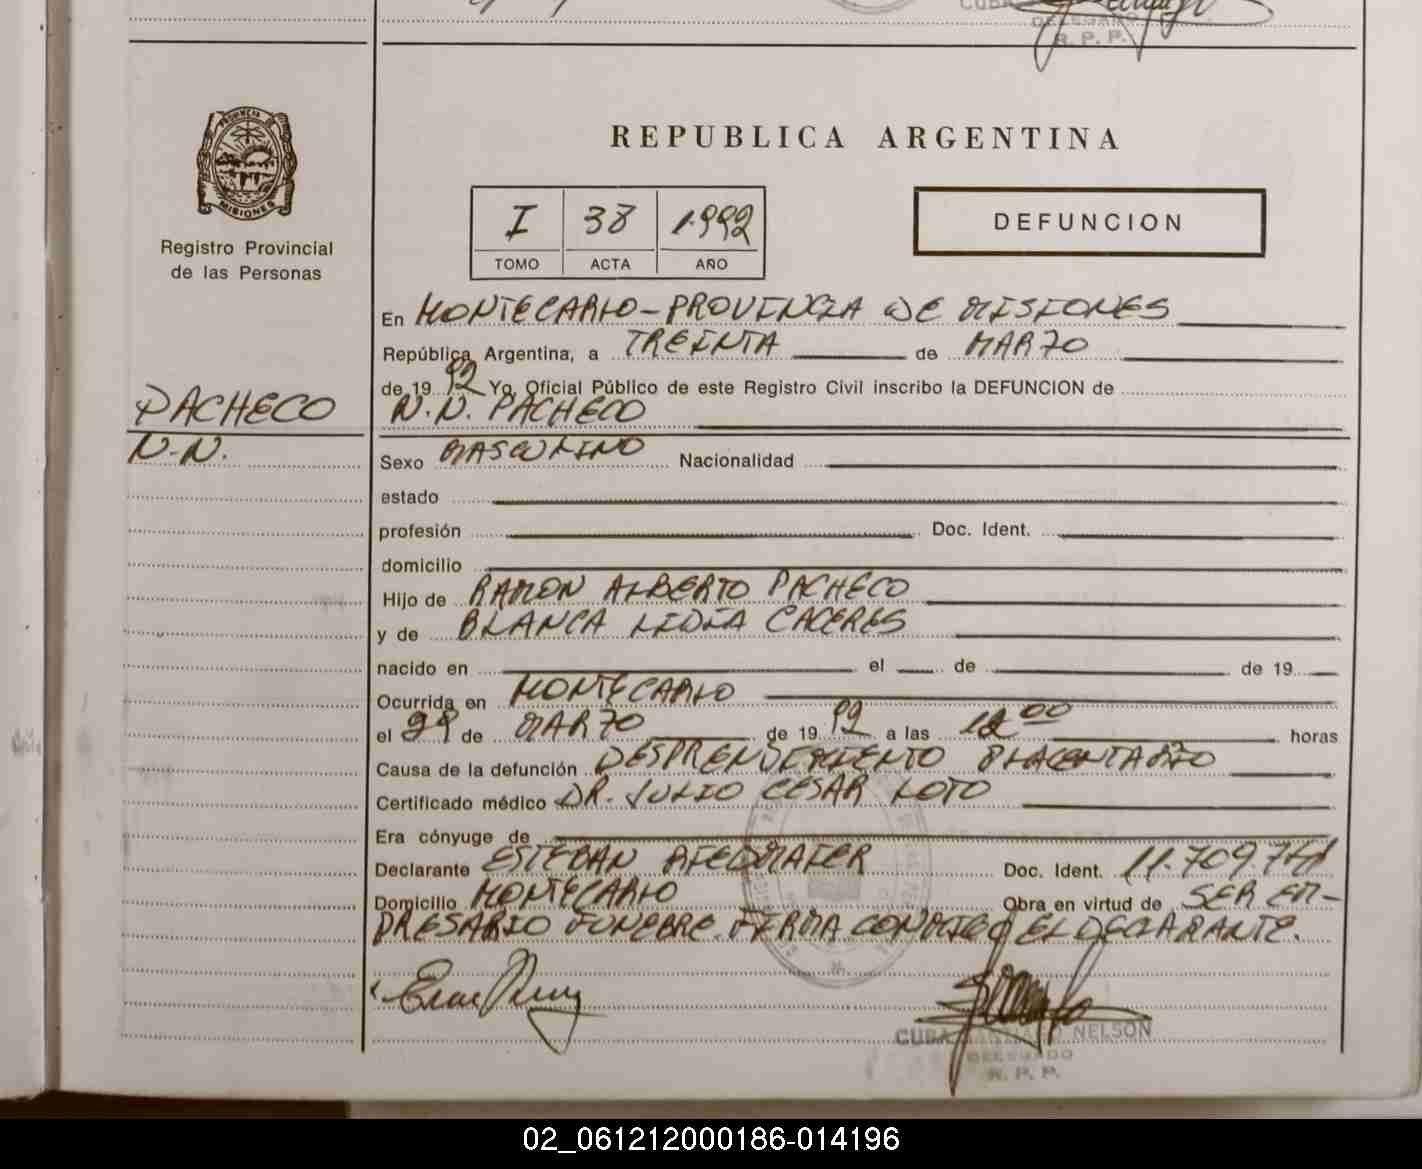 CUBA
DELEGADO
R. P. P.
PROVINCIA DE
MISIONES
Registro Provincial
de las Personas
REPUBLICA ARGENTINA
I 38 1.992
TOMO ACTA AÑO
DEFUNCION
En MONTECARLO - PROVINCIA DE MISIONES
República Argentina, a TREINTA de MARZO
de 19 92 Yo, Oficial Público de este Registro Civil inscribo la DEFUNCION de
PACHECO N.N. PACHECO
N.N.
Sexo MASCULINO Nacionalidad
estado
profesión Doc. Ident.
domicilio
Hijo de RAMON ALBERTO PACHECO
y de BLANCA LIDIA CACERES
nacido en el de de 19
Ocurrida en MONTECARLO
el de MARZO de 19 92 a las 12 00 horas
Causa de la defunción DESPRENDIMIENTO PLACENTARIO
Certificado médico DR. JULIO CESAR LOTO
Era cónyuge de
Declarante ESTEBAN Doc. Ident.
Domicilio MONTECARLO Obra en virtud de SER EM-
PRESARIO FUNEBRE. FIRMA CONMIGO EL DECLARANTE.
CUBA NELSON
DELEGADO
R. P. P.
02_061212000186-014196